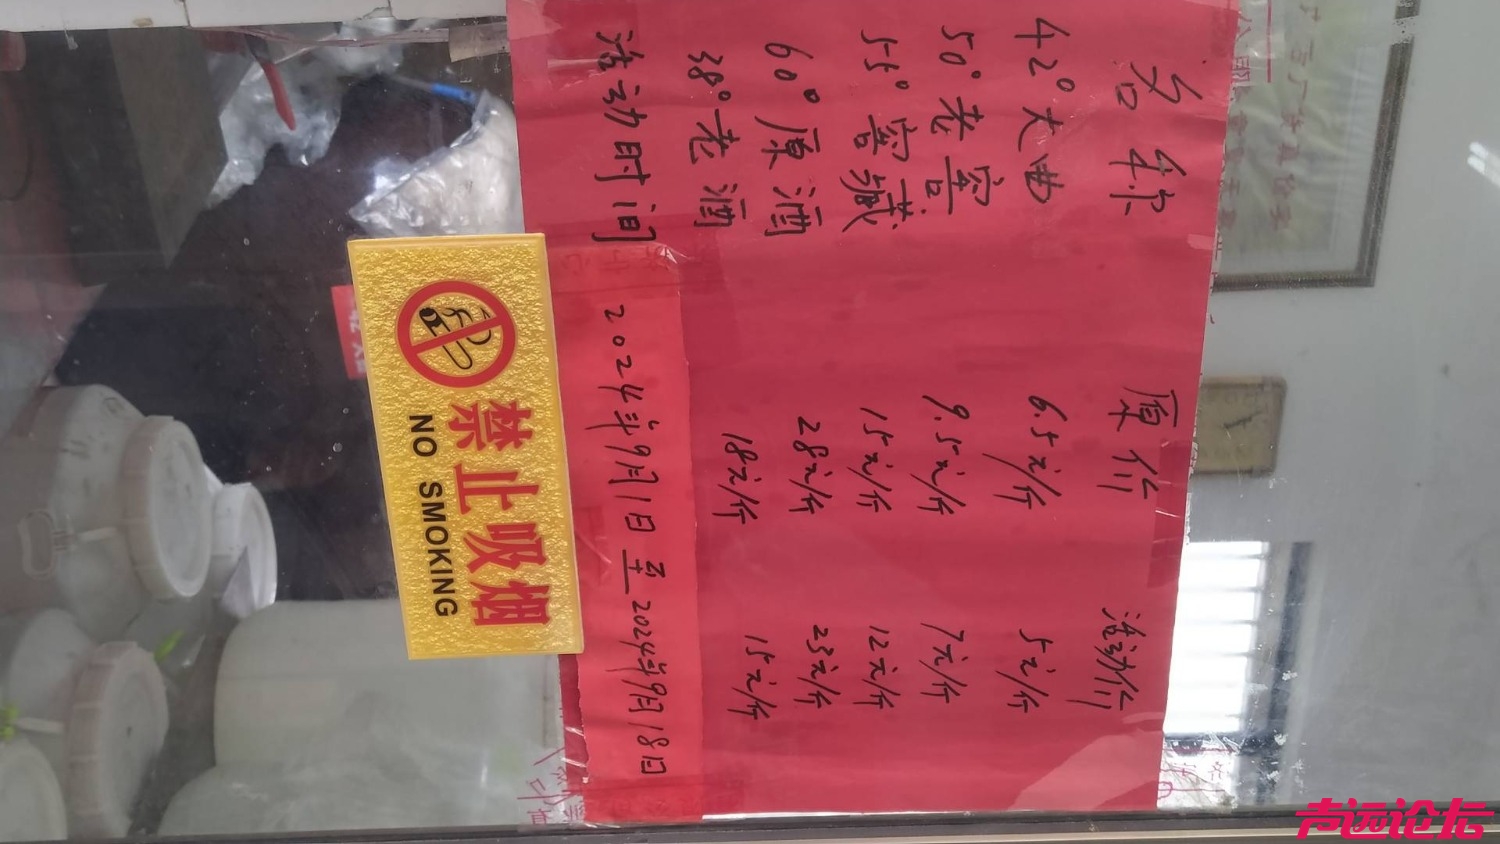 名称 原价 活动价
42°大曲 6.5元/斤 5元/斤
50°老窖 9.5元/斤 7元/斤
55°窖藏 15元/斤 12元/斤
60°原酒 28元/斤 23元/斤
38°老酒 18元/斤 15元/斤
活动时间 2024年9月1日至2024年9月18日
禁止吸烟
NO SMOKING
声远论坛